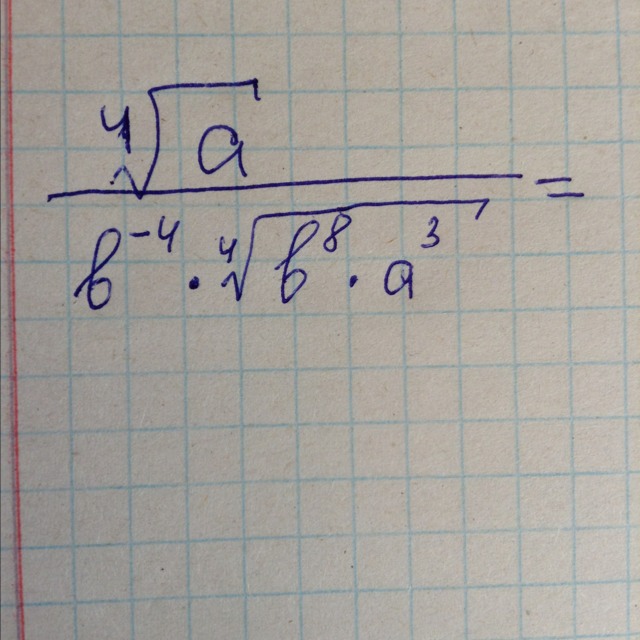 ⁴√a
b⁻⁴ · ⁴√(b⁸ · a³) =